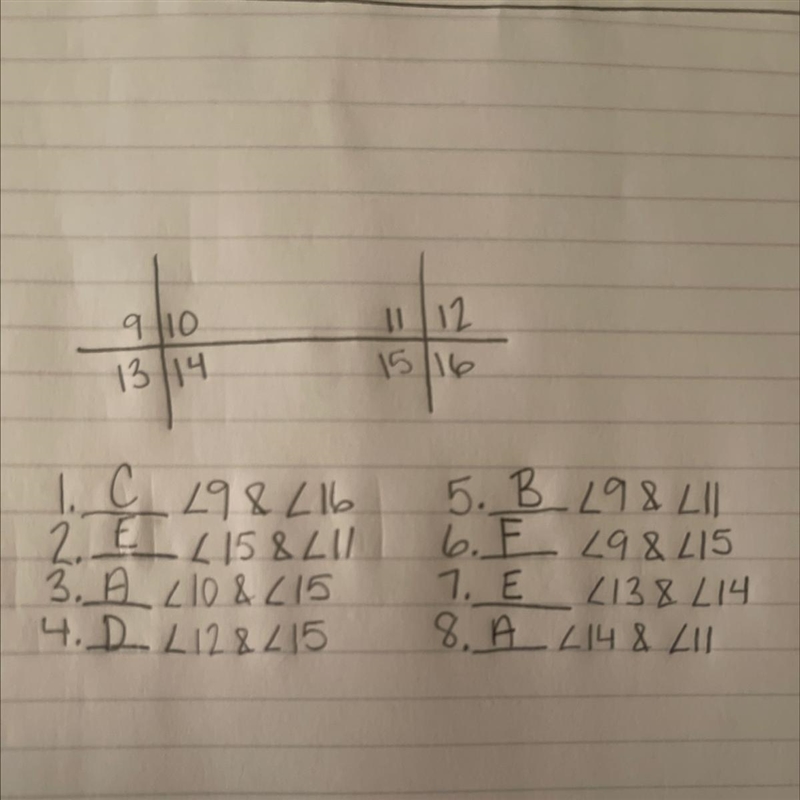 9 10 11 12
13 14 15 16
1. C ∠9 & ∠16
2. E ∠15 & ∠11
3. A ∠10 & ∠15
4. D ∠12 & ∠15
5. B ∠9 & ∠11
6. F ∠9 & ∠15
7. E ∠13 & ∠14
8. A ∠14 & ∠11